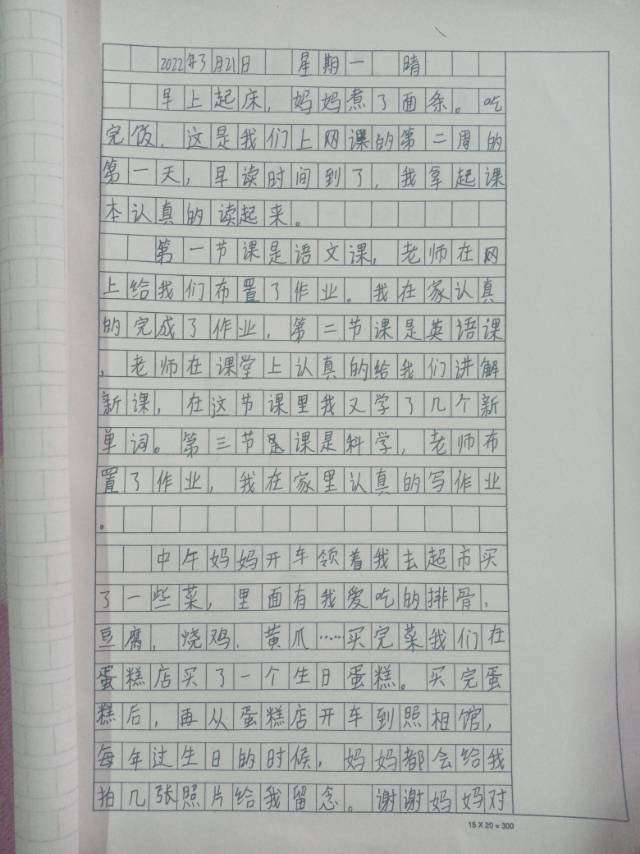 2022年3月21日 星期一 晴
早上起床，妈妈煮了面条。吃
完饭，这是我们上网课的第二周的
第一天，早读时间到了，我拿起课
本认真的读起来。
第一节课是语文课，老师在网
上给我们布置了作业。我在家认真
的完成了作业，第二节课是英语课
，老师在课堂上认真的给我们讲解
新课，在这节课里我又学了几个新
单词。第三节课是科学，老师布
置了作业，我在家里认真的写作业
。
中午妈妈开车领着我去超市买
了一些菜，里面有我爱吃的排骨，
豆腐，烧鸡，黄爪……买完菜我们在
蛋糕店买了一个生日蛋糕。买完蛋
糕后，再从蛋糕店开车到照相馆，
每年过生日的时候，妈妈都会给我
拍几张照片给我留念。谢谢妈妈对
15×20=300